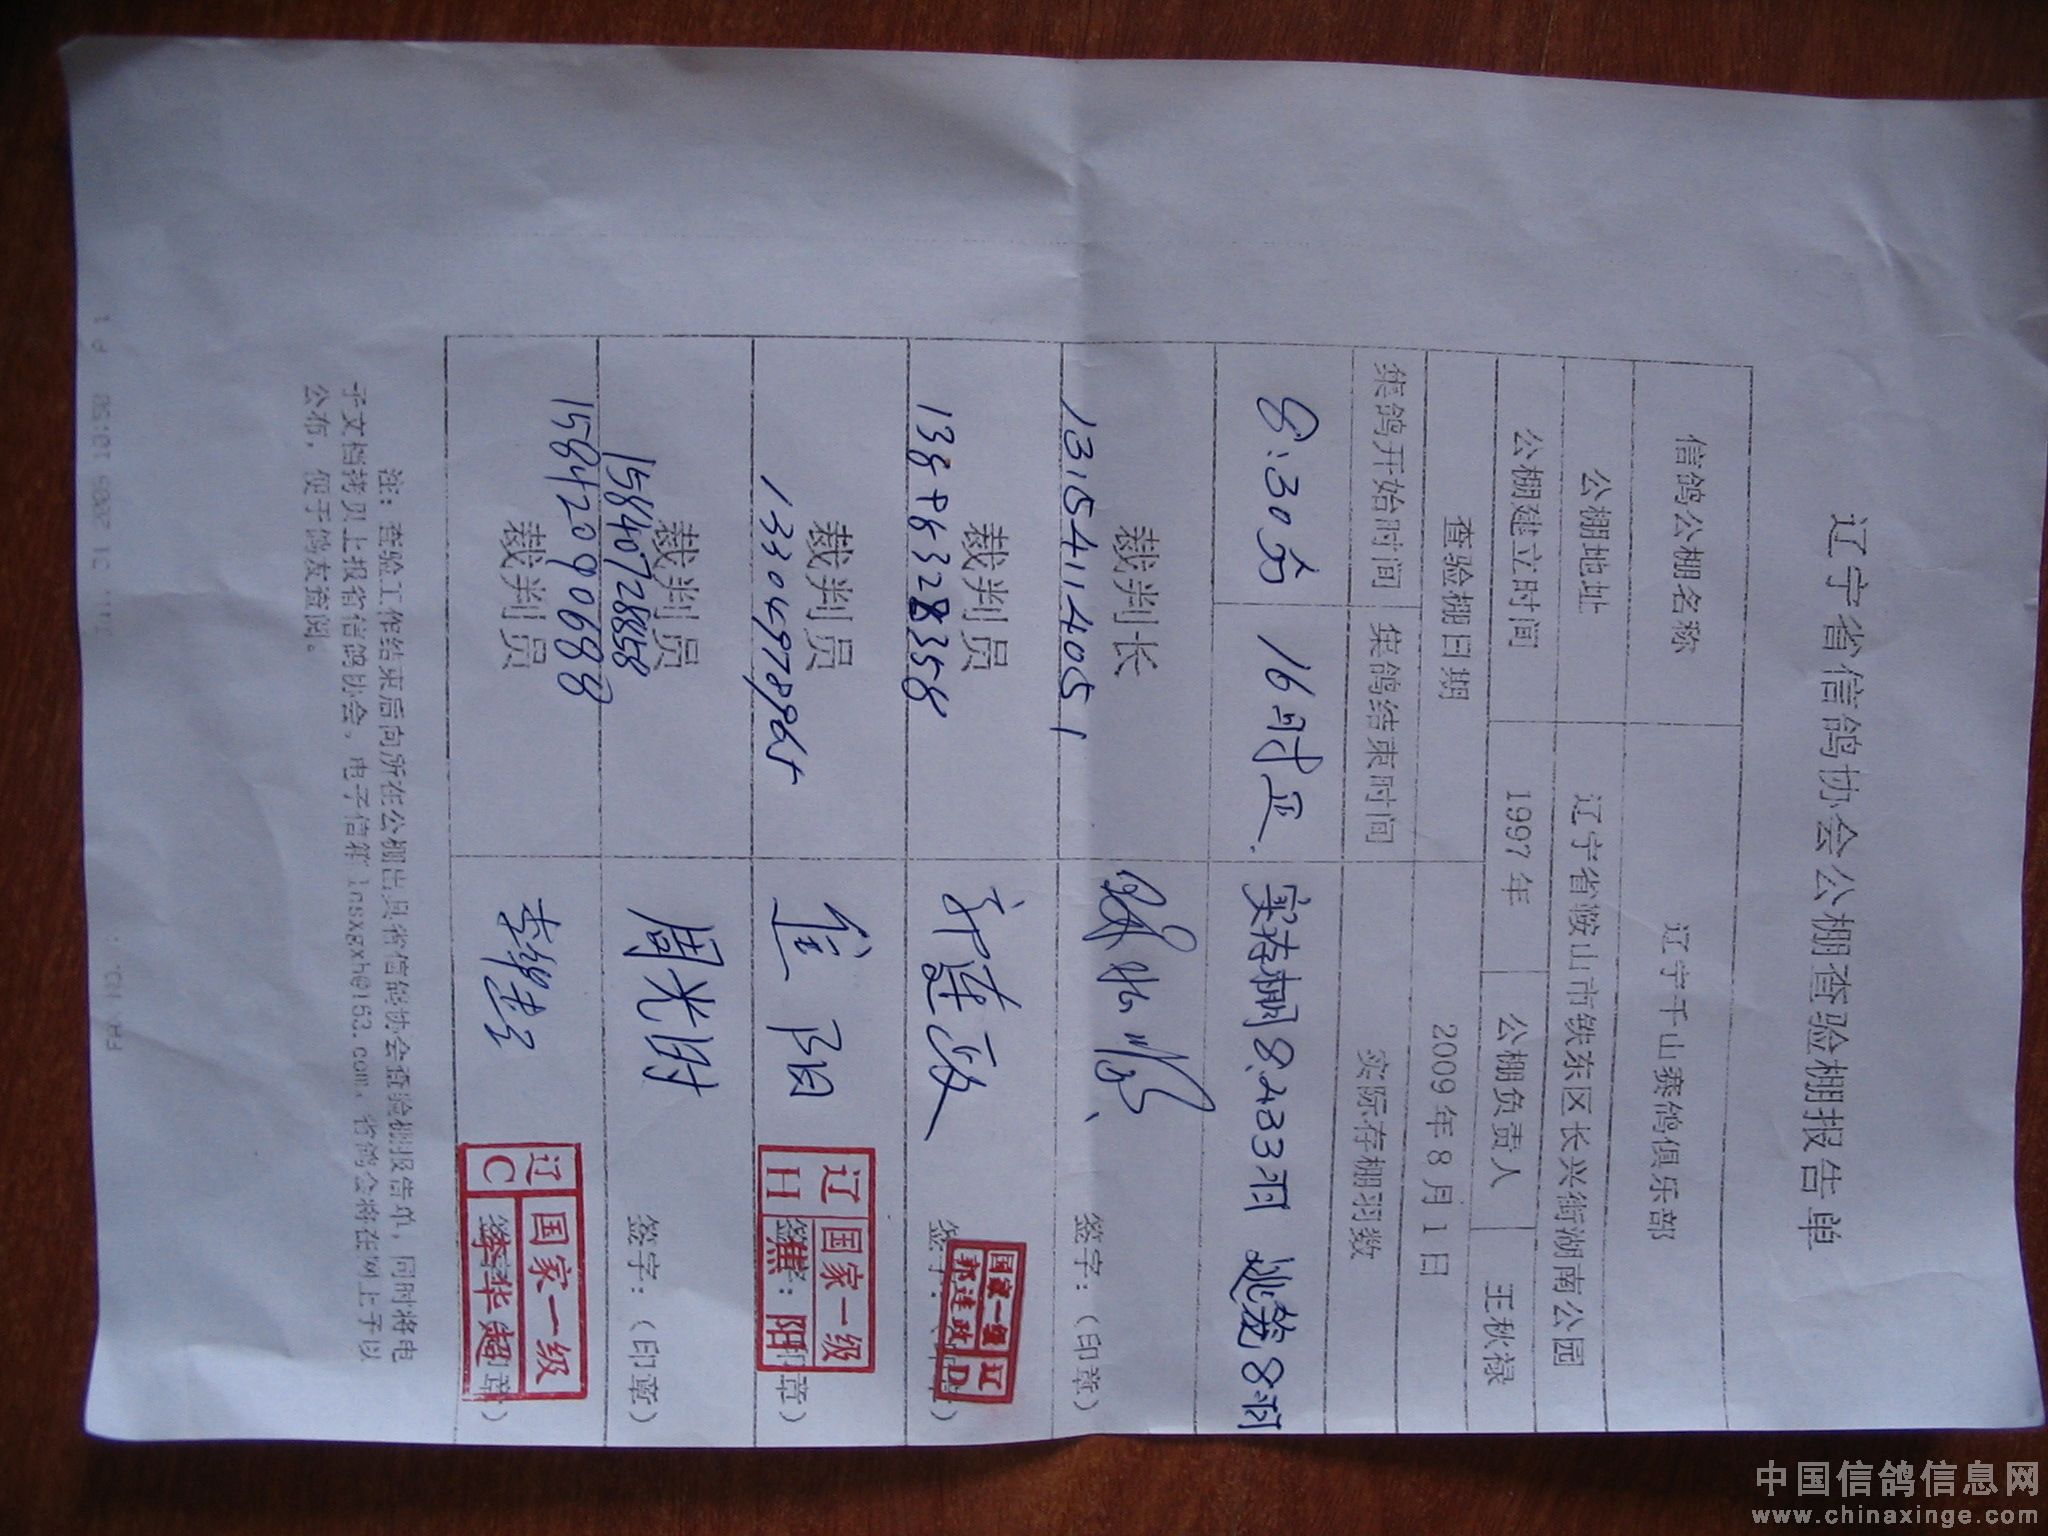 辽宁省信鸽协会公棚查验棚报告单
信鸽公棚名称 辽宁千山赛鸽俱乐部
公棚地址 辽宁省鞍山市铁东区长兴街湖南公园
公棚建立时间 1997年 公棚负责人 王秋禄
查验棚日期 2009年8月1日
集鸽开始时间 集鸽结束时间 实际存棚羽数
8:30分 16时正. 实存棚8.233羽 8羽
裁判长 签字:(印章)
13154114051
裁判员 签字:
国家一级 辽
郭连政 D
裁判员 焦阳
辽 国家一级
H 焦阳
13304978965
裁判员 周光明 签字:(印章)
15840728858
裁判员
15842090688
辽 国家一级
C 李华超
注:查验工作结束后向所在公棚出具省信鸽协会查验棚报告单,同时将电
子文档拷贝上报省信鸽协会,电子信箱lnsxgxh@163.com,省鸽会将在网上予以
公布,便于鸽友查阅。
中国信鸽信息网
www.chinaxinge.com